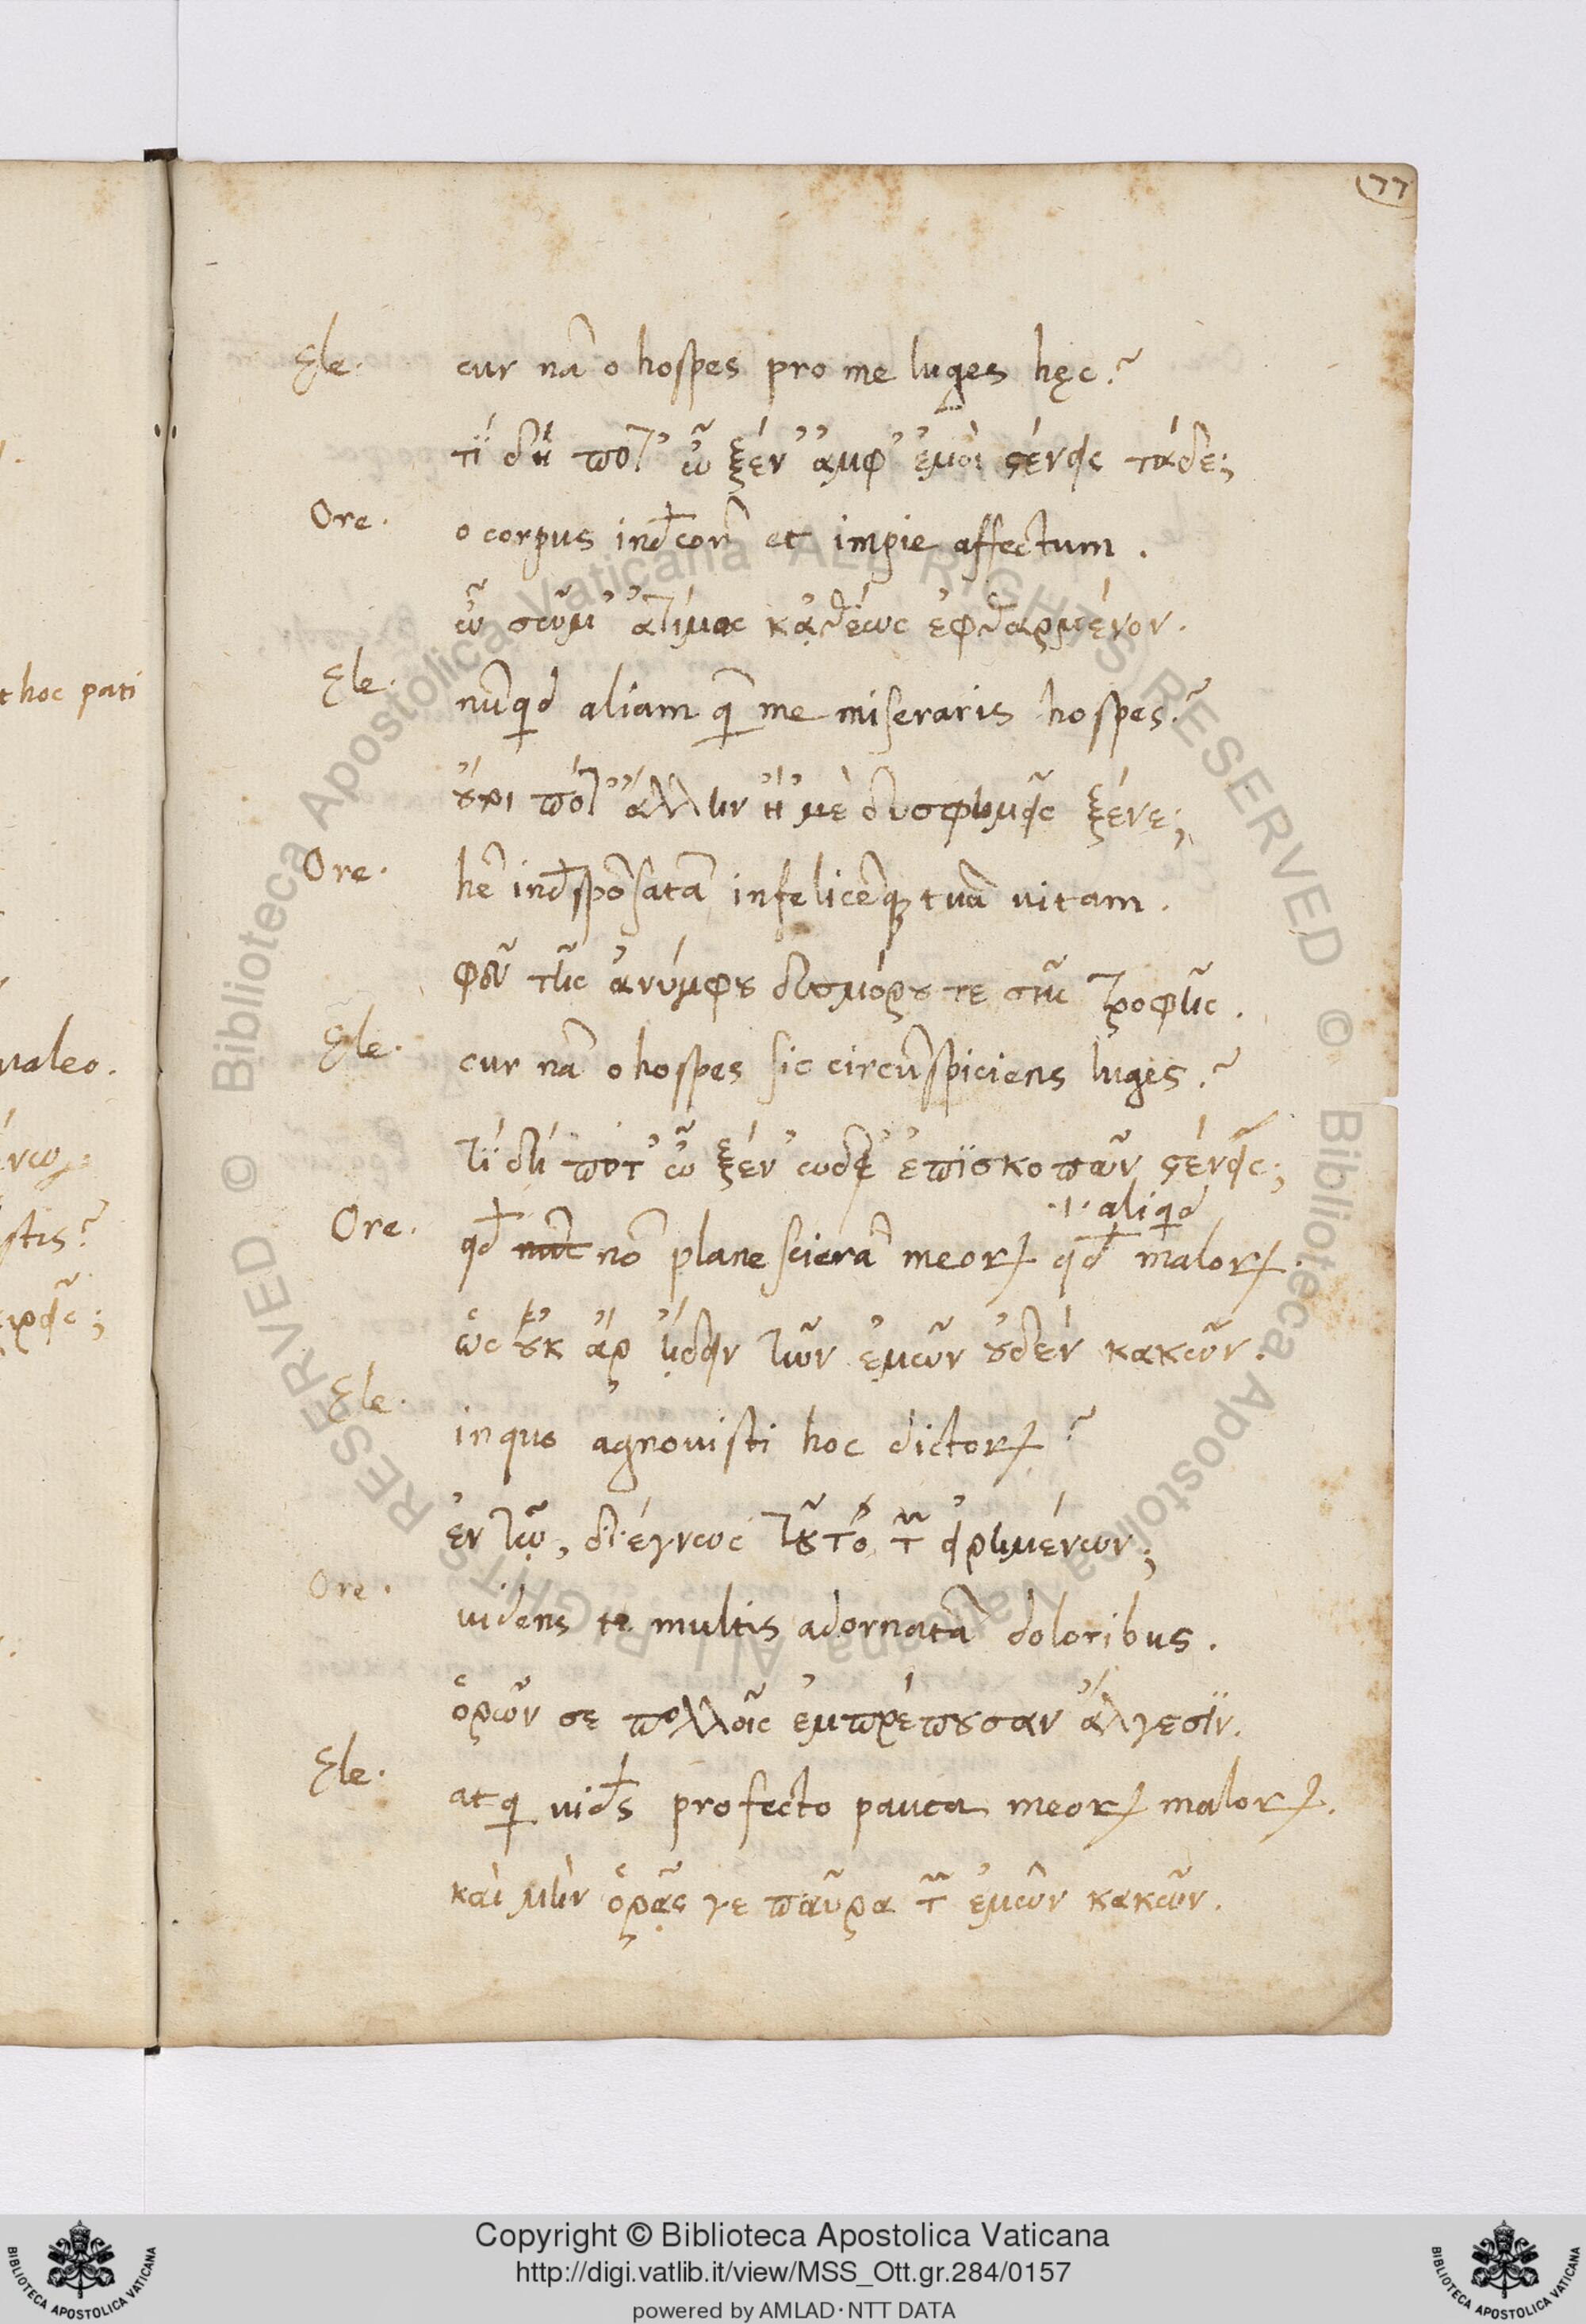 77
Ele. cur nã o hospes pro me luges hęc?
τί δή ποτ' ὦ ξέν' ἀμφ' ἐμοὶ στένεις τάδε;
Ore. o corpus indecorẽ et impie affectum.
ὦ σῶμ' ἀτίμως κἀθέως ἐφθαρμένον.
Ele. nũqd aliam q̃ me miseraris hospes?
οὔτοι ποτ' ἄλλην ἤ 'μὲ δυσφημεῖς ξένε;
Ore. hẽ indesponsatã infelicẽq; tuã vitam.
φεῦ τῆς ἀνύμφου δυσμόρου τε σῆς τροφῆς.
Ele. cur nã o hospes sic circũspiciens luges?
τί δή ποτ' ὦ ξέν' ὧδ' ἐπισκοπῶν στένεις;
.i. aliqd
Ore. qd nũc nõ plane scierã meorum qd malorum.
ὡς οὐκ ἄρ' ᾔδειν τῶν ἐμῶν οὐδὲν κακῶν.
Ele. in quo agnovisti hoc dictorum?
ἐν τῷ, διέγνως τοῦτο τῶν εἰρημένων;
Ore. videns te multis adornatã doloribus.
ὁρῶν σε πολλοῖς ἐμπρέπουσαν ἄλγεσιν.
Ele. atqui vides profecto pauca meorum malorum.
καὶ μὴν ὁρᾷς γε παῦρα τῶν ἐμῶν κακῶν.
t hoc pati
valeo.
stis?
© Biblioteca Apostolica Vaticana ALL RIGHTS RESERVED © Biblioteca Apostolica Vaticana ALL RIGHTS RESERVED
Copyright © Biblioteca Apostolica Vaticana
http://digi.vatlib.it/view/MSS_Ott.gr.284/0157
powered by AMLAD·NTT DATA
BIBLIOTECA APOSTOLICA VATICANA
BIBLIOTECA APOSTOLICA VATICANA